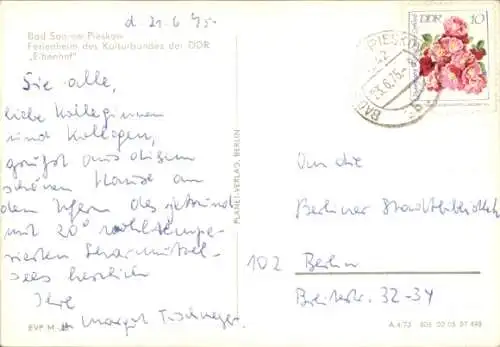 d. 21.6.75.
Bad Saarow-Pieskow
Ferienheim des Kulturbundes der DDR
„Eibenhof"
Sie alle,
liebe Kolleginnen
und Kollegen,
grüßt aus diesem
schönen Hause an
den Ufern des
mit 20° wohltempe-
rierten Scharmützel-
sees herzlich
Ihre
Margot
EVP M
PLANET-VERLAG, BERLIN
DDR 10
PIESKOW
BAD
An die
Berliner Stadtbibliothek
102 Berlin
Breitestr. 32-34
A 4/73